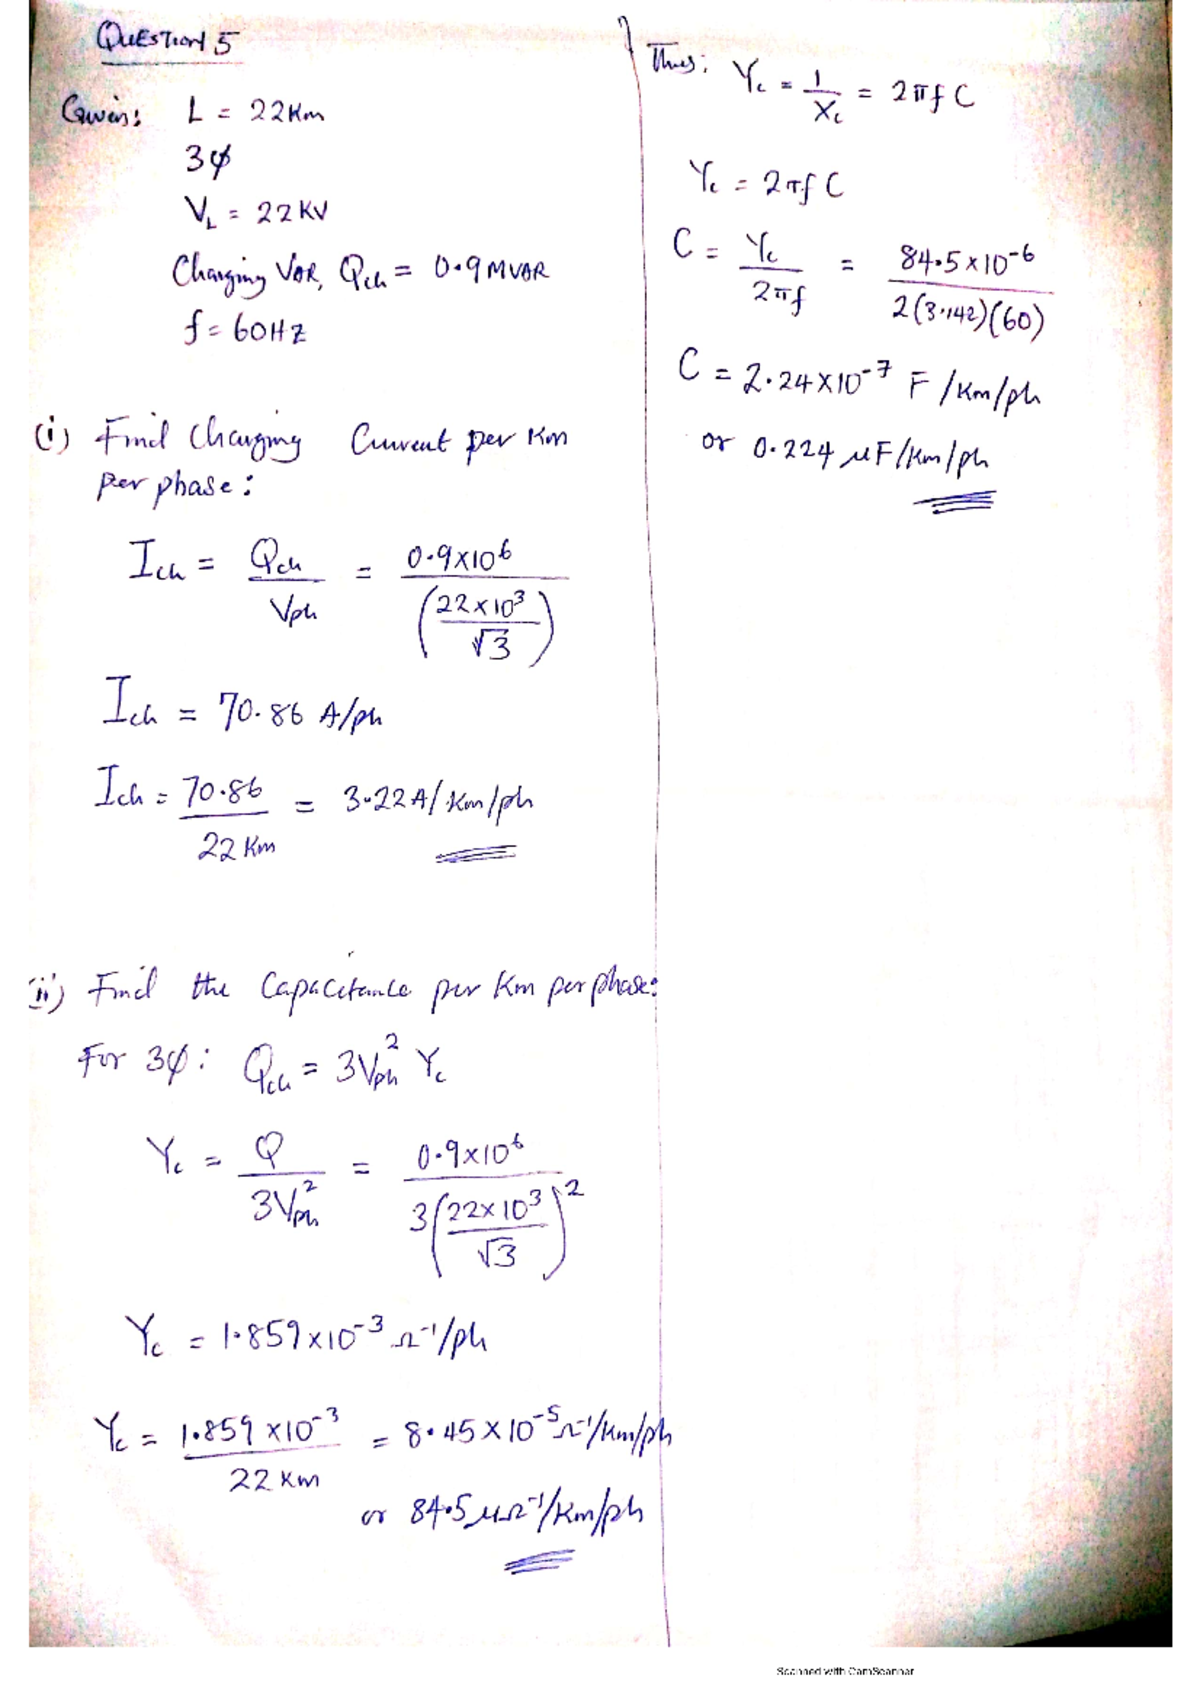 QUESTION 5
Given: L = 22Km
3φ
V_L = 22KV
Charging VAR, Qch = 0.9MVAR
f = 60HZ
(i) Find Charging Current per Km
per phase:
Ich = Qch / Vph = 0.9x10^6 / (22x10^3 / √3)
Ich = 70.86 A/ph
Ich = 70.86 / 22 Km = 3.22A/Km/ph
(ii) Find the Capacitance per Km per phase:
For 3φ: Qch = 3Vph^2 Yc
Yc = Q / 3Vph^2 = 0.9x10^6 / 3(22x10^3 / √3)^2
Yc = 1.859x10^-3 Ω^-1/ph
Yc = 1.859x10^-3 / 22 Km = 8.45x10^-5 Ω^-1/Km/ph
or 84.5μΩ^-1/Km/ph
Thus: Yc = 1 / Xc = 2πfC
Yc = 2πfC
C = Yc / 2πf = 84.5x10^-6 / 2(3.142)(60)
C = 2.24x10^-7 F/Km/ph
or 0.224 μF/Km/ph
Scanned with CamScanner